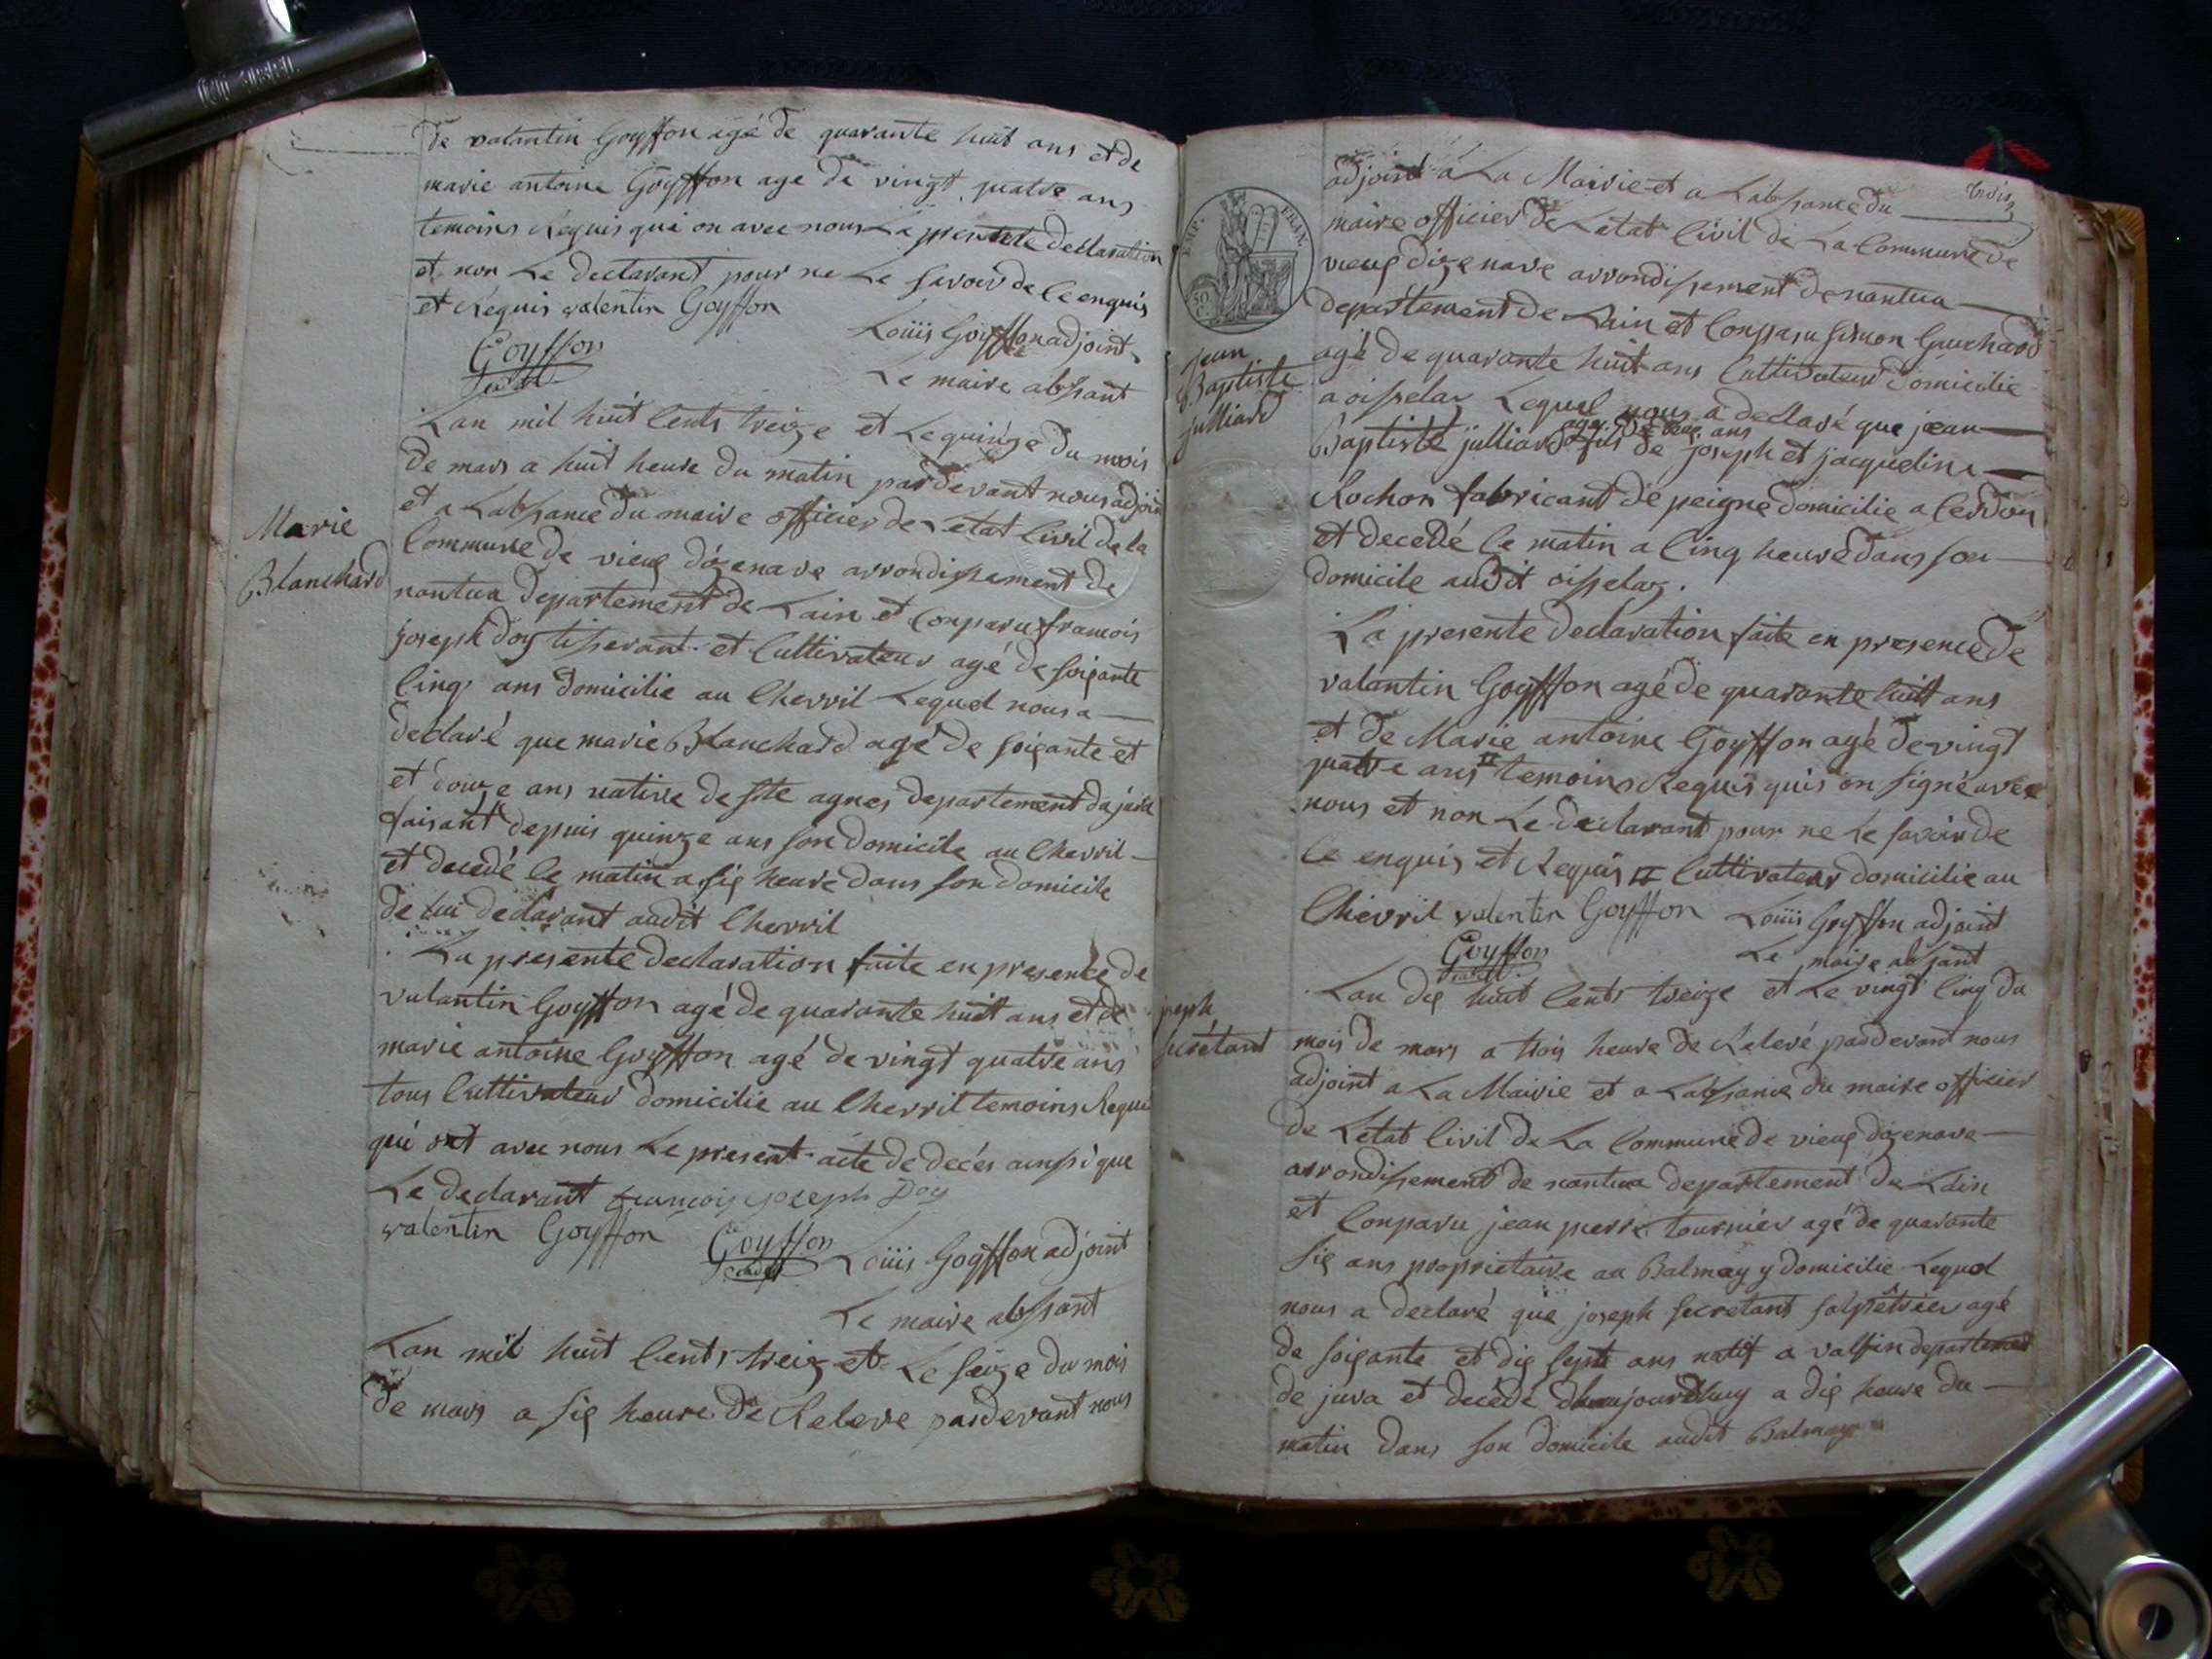 de valantin Goyffon agé de quarante huit ans et de
marie antoine Goyffon age de vingt quatre ans
temoins Requis qui on avec nous La presente declaration
et non Le declarant pour ne Le savoir de ce enquis
et Requis valentin Goyffon
Goyffon
Louis Goyffon adjoint
Le maire absant
Marie
Blanchard
Lan mil huit cents treize et Le quinze du mois
de mars a huit heure du matin pardevant nous adjoin
et a Labsance du maire officier de Letat civil de la
Commune de vieux dizenave arrondissement de
nantua departement de Lain et Conparu francois
joseph doy tisserant et Cultivateur agé de soixante
cinq ans domicilie au Chevril Lequel nous a
declaré que marie Blanchard agé de soixante et
et douze ans native de ste agnes departement du jura
faisant depuis quinze ans son domicile au Chevril
et decedé ce matin a six heure dans son domicile
de lui declarant audit Chevril
La presente declaration faite en presence de
valantin Goyffon agé de quarante huit ans et de
marie antoine Goyffon agé de vingt quatre ans
tous Cultivateur domicilie au Chevril temoins Requi
qui ont avec nous Le present acte de decés ainssi que
Le declarant francois joseph Doy
valentin Goyffon
Goyffon
Louis Goyffon adjoint
Le maire absant
Lan mil huit Cents treiz et Le seize du mois
de mars a six heure de Releve pardevant nous
trois
adjoint a La Mairie et a Labsance du
maire officier de Letat Civil de La Commune de
vieux dizenave arrondissement de nantua
departement de Lain et Conparu simon Guichard
EMP. FRAN.
50 C
jean
Baptiste
julliard
agé de quarante huit ans Cultivateur domicilie
a oisselaz Lequel nous a declaré que jean
agé de ans
Baptiste julliard fils de joseph et jacqueline
Rochon fabricant de peigne domicilie a Cerdon
et decedé ce matin a cinq heure dans son
domicile audit oisselaz.
La presente declaration faite en presence de
valantin Goyffon agé de quarante huit ans
et de Marie antoine Goyffon agé de vingt
quatre ans # temoins Requis quis on signé avec
nous et non Le declarant pour ne Le savoir de
ce enquis et Requis # Cultivateur domicilie au
Chevril valentin Goyffon Louis Goyffon adjoint
Goyffon
Le maire absant
joseph
secrétant
Lan dix huit Cents treize et Le vingt cinq du
mois de mars a trois heure de Relevé pardevant nous
adjoint a La Mairie et a Labsance du maire officier
de Letat Civil de La Commune de vieux dizenave
arrondissement de nantua departement de Lain
et Conparu jean pierre tournier agé de quarante
six ans proprietaire au Balmay y domicilie Lequel
nous a declaré que joseph secretant salpêtrier agé
de soixante et dix sept ans natif a valfin departement
de jura et decedé dhaujourdhuy a dix heure du
matin dans son domicile audit Balmay